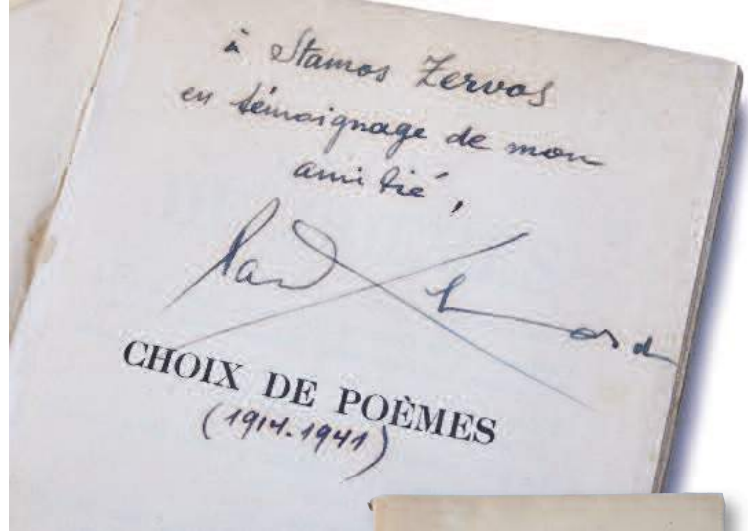 à Stamos Zervos
en témoignage de mon
amitié,
Paul Eluard
CHOIX DE POÈMES
(1914-1941)